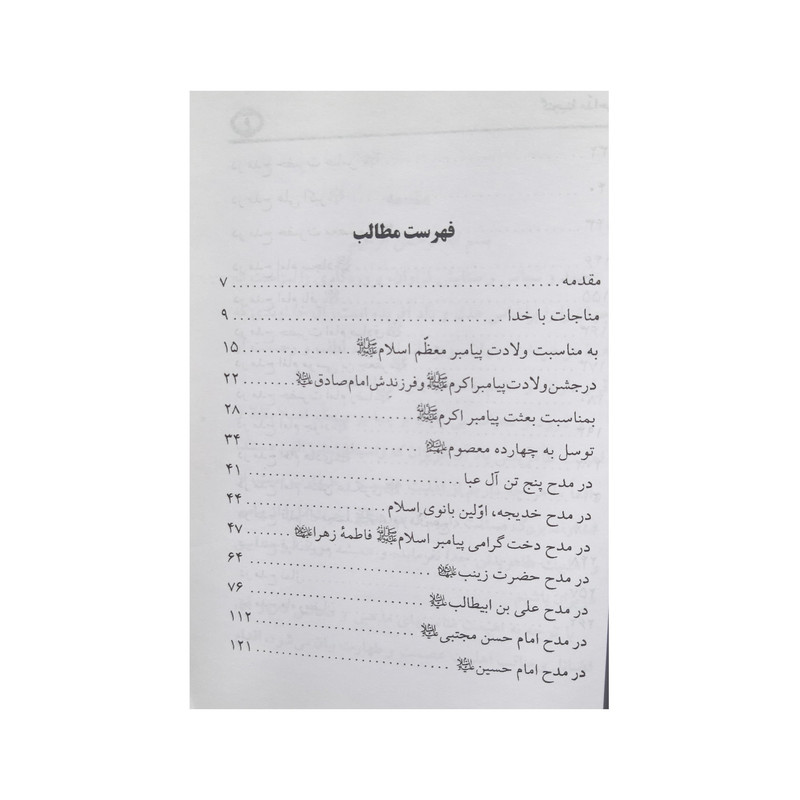 فهرست مطالب
مقدمه ........ ۷
مناجات با خدا ........ ۹
به مناسبت ولادت پیامبر معظّم اسلام ﷺ ........ ۱۵
در جشن ولادت پیامبر اکرم ﷺ و فرزندش امام صادق علیه‌السلام ........ ۲۲
بمناسبت بعثت پیامبر اکرم ﷺ ........ ۲۸
توسل به چهارده معصوم علیهم‌السلام ........ ۳۴
در مدح پنج تن آل عبا ........ ۴۱
در مدح خدیجه، اوّلین بانوی اسلام ........ ۴۴
در مدح دخت گرامی پیامبر اسلام ﷺ فاطمهٔ زهرا علیها‌السلام ........ ۴۷
در مدح حضرت زینب علیها‌السلام ........ ۶۴
در مدح علی بن ابیطالب علیه‌السلام ........ ۷۶
در مدح امام حسن مجتبی علیه‌السلام ........ ۱۱۲
در مدح امام حسین علیه‌السلام ........ ۱۲۱